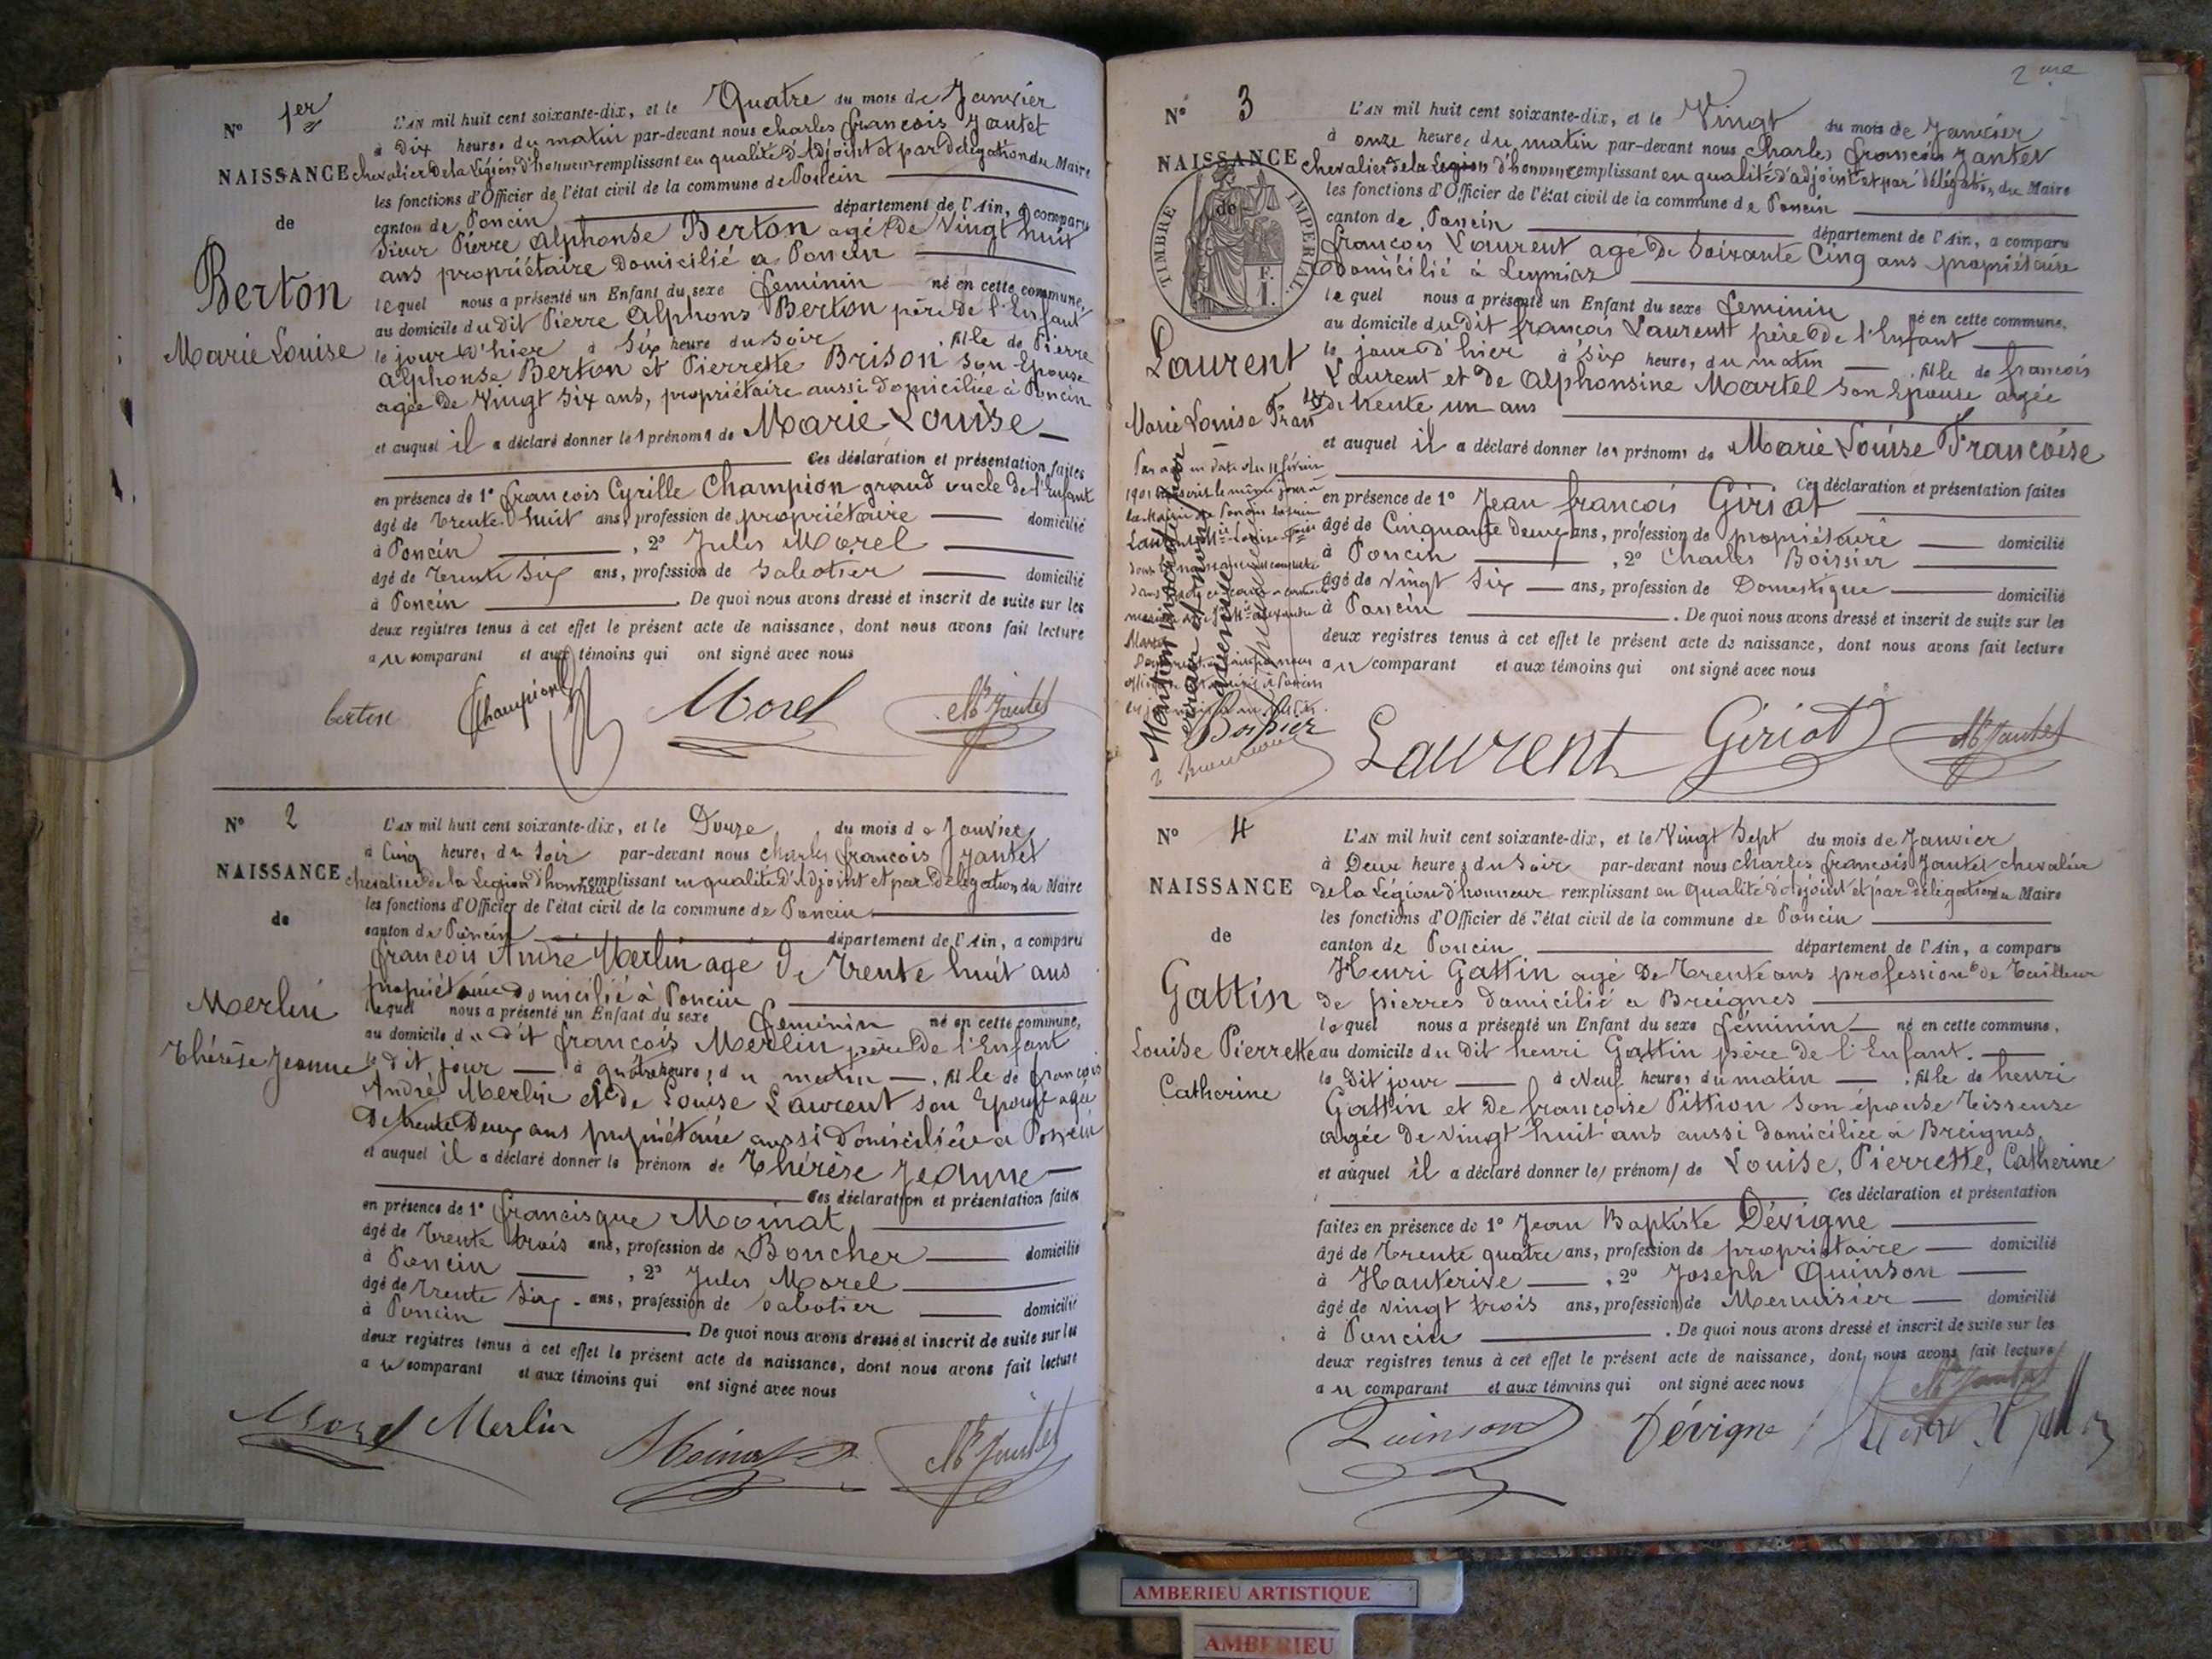 Nº 1er
NAISSANCE
de
Berton
Marie Louise
L'AN mil huit cent soixante-dix, et le Quatre du mois de Janvier
à Dix heures du matin par-devant nous charles françois Jantet
chevalier de la Légion d'honneur remplissant en qualité d'Adjoint et par Délégation du Maire
les fonctions d'Officier de l'état civil de la commune de Poncin
canton de Poncin département de l'Ain, a comparu
Sieur Pierre Alphonse Berton agé de Vingt huit
ans propriétaire Domicilié a Poncin
lequel nous a présenté un Enfant du sexe feminin né en cette commune,
au domicile du dit Pierre Alphons Berton père de l'Enfant
le jour d'hier à Six heure du Soir, fille de Pierre
Alphonse Berton et Pierrette Brison son Epouse
agée de Vingt Six ans, propriétaire aussi domiciliée à Poncin
et auquel il a déclaré donner les prénoms de Marie Louise
Ces déclaration et présentation faites
en présence de 1º françois Cyrille Champion grand oncle de l'Enfant
âgé de Trente huit ans, profession de propriétaire domicilié
à Poncin, 2º Jules Morel
âgé de Trente Six ans, profession de Sabotier domicilié
à Poncin. De quoi nous avons dressé et inscrit de suite sur les
deux registres tenus à cet effet le présent acte de naissance, dont nous avons fait lecture
au comparant et aux témoins qui ont signé avec nous
berton Champion Morel Jantet
Nº 2
NAISSANCE
de
Merlin
Thérèse Jeanne
L'AN mil huit cent soixante-dix, et le Douze du mois de Janvier
à Cinq heures du Soir par-devant nous charles francois Jantet
chevalier de la Legion d'honneur remplissant en qualité d'Adjoint et par Délégation du Maire
les fonctions d'Officier de l'état civil de la commune de Poncin
canton de Poncin département de l'Ain, a comparu
françois André Merlin agé de Trente huit ans
propriétaire domicilié à Poncin
lequel nous a présenté un Enfant du sexe feminin né en cette commune,
au domicile du dit françois Merlin père de l'Enfant
le dit jour à quatre heures du matin, fille de françois
André Merlin et de Louise Laurent son Epouse agée
De trente Deux ans propriétaire aussi domiciliée a Poncin
et auquel il a déclaré donner le prénom de Thérèse Jeanne
Ces déclaration et présentation faites
en présence de 1º francisque Moinat,
âgé de Trente trois ans, profession de Boucher domicilié
à Poncin, 2º Jules Morel
âgé de Trente Six ans, profession de Sabotier domicilié
à Poncin De quoi nous avons dressé et inscrit de suite sur les
deux registres tenus à cet effet le présent acte de naissance, dont nous avons fait lecture
au comparant et aux témoins qui ont signé avec nous
Morel Merlin Moinat Jantet
2me
Nº 3
NAISSANCE
de
TIMBRE IMPERIAL
F.
1.
Laurent
Marie Louise Fran
L'AN mil huit cent soixante-dix, et le Vingt du mois de Janvier
à onze heures du matin par-devant nous Charles françois Jantet
chevalier de la Legion d'honneur remplissant en qualité d'adjoint et par délégation du Maire
les fonctions d'Officier de l'état civil de la commune de Poncin
canton de Poncin département de l'Ain, a comparu
françois Laurent agé de Soixante Cinq ans propriétaire
Domicilié à Leymiaz
lequel nous a présenté un Enfant du sexe feminin né en cette commune,
au domicile du dit françois Laurent père de l'Enfant
le jour d'hier à six heures du matin, fille de françois
Laurent et de Alphonsine Martel son Epouse agée
de trente un ans
et auquel il a déclaré donner les prénoms de Marie Louise Françoise
Ces déclaration et présentation faites
en présence de 1º Jean françois Giriat
âgé de Cinquante deux ans, profession de propriétaire domicilié
à Poncin, 2º Charles Boissier
âgé de vingt Six ans, profession de Domestique domicilié
à Poncin. De quoi nous avons dressé et inscrit de suite sur les
deux registres tenus à cet effet le présent acte de naissance, dont nous avons fait lecture
au comparant et aux témoins qui ont signé avec nous
Boissier Laurent Giriat Jantet
Nº 4
NAISSANCE
de
Gattin
Louise Pierrette
Catherine
L'AN mil huit cent soixante-dix, et le Vingt Sept du mois de Janvier
à Deux heures du Soir par-devant nous charles francois Jantet chevalier
de la Légion d'honneur remplissant en qualité d'adjoint et par délégation du Maire
les fonctions d'Officier de l'état civil de la commune de Poncin
canton de Poncin département de l'Ain, a comparu
Henri Gattin agé De Trente ans profession de Tailleur
de pierres domicilié a Breignes
lequel nous a présenté un Enfant du sexe féminin né en cette commune,
au domicile du dit henri Gattin père de l'Enfant.
le dit jour à Neuf heures du matin, fille de henri
Gattin et de françoise Pittion son épouse Tisseuse
agée de vingt huit ans aussi domiciliée à Breignes
et auquel il a déclaré donner les prénoms de Louise, Pierrette, Catherine
Ces déclaration et présentation
faites en présence de 1º Jean Baptiste Dévigne
âgé de Trente quatre ans, profession de propriétaire domicilié
à Hauterive, 2º Joseph Quinson
âgé de vingt trois ans, profession de Menuisier domicilié
à Poncin. De quoi nous avons dressé et inscrit de suite sur les
deux registres tenus à cet effet le présent acte de naissance, dont nous avons fait lecture
au comparant et aux témoins qui ont signé avec nous
Quinson Dévigne Jantet
AMBERIEU ARTISTIQUE
AMBERIEU